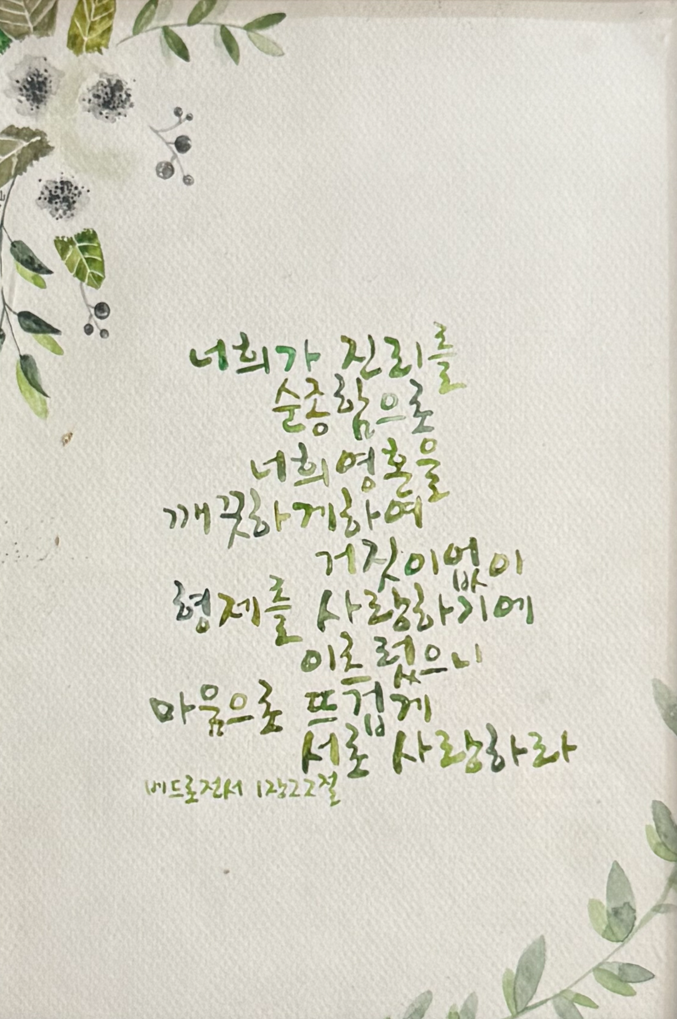 너희가 진리를
순종함으로
너희영혼을
깨끗하게하여
거짓이없이
형제를 사랑하기에
이르렀으니
마음으로 뜨겁게
서로 사랑하라
베드로전서 1장22절